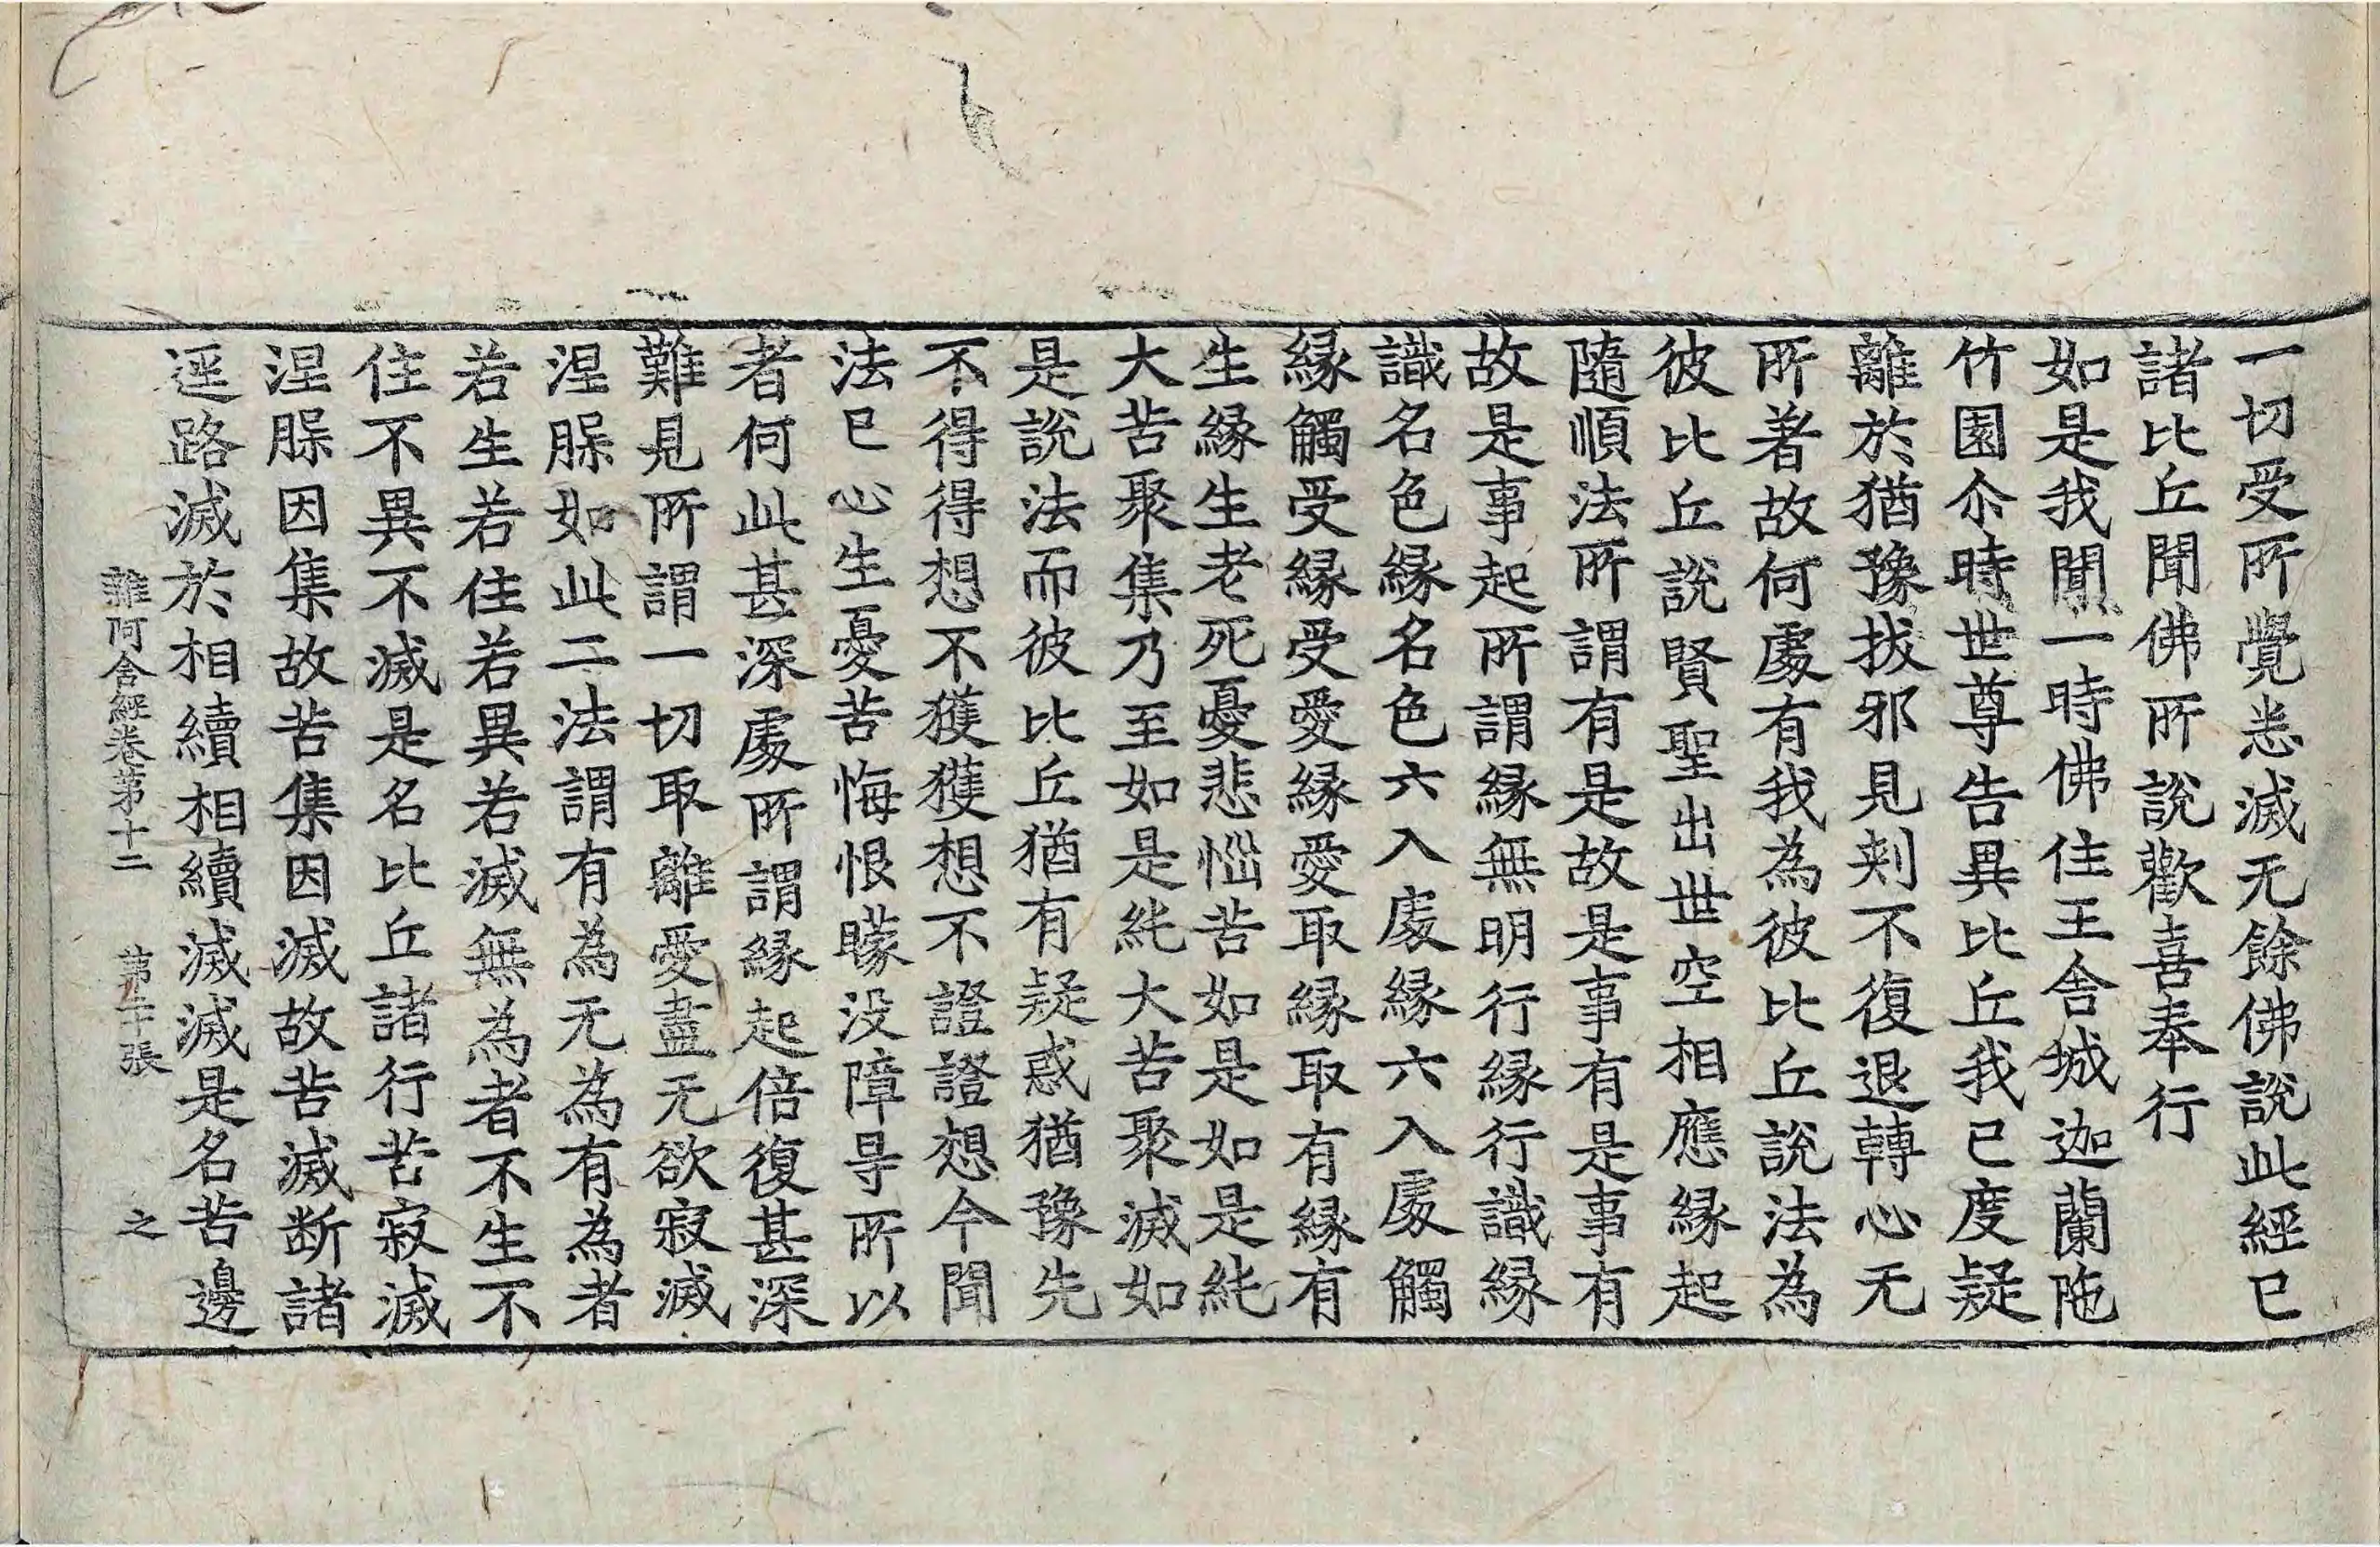 一切受所覺悉滅无餘佛說此經已
諸比丘聞佛所說歡喜奉行
如是我聞一時佛住王舍城迦蘭陁
竹園尒時世尊告異比丘我已度疑
離於猶豫拔邪見刾不復退轉心无
所著故何處有我為彼比丘說法為
彼比丘說賢聖出世空相應緣起
隨順法所謂有是故是事有是事有
故是事起所謂緣無明行緣行識緣
識名色緣名色六入處緣六入處觸
緣觸受緣受愛緣愛取緣取有緣有
生緣生老死憂悲惱苦如是如是純
大苦聚集乃至如是純大苦聚滅如
是說法而彼比丘猶有疑惑猶豫先
不得得想不獲獲想不證證想今聞
法已心生憂苦悔恨矇没障㝵所以
者何此甚深處所謂緣起倍復甚深
難見所謂一切取離愛盡无欲寂滅
涅槃如此二法謂有為无為有為者
若生若住若異若滅無為者不生不
住不異不滅是名比丘諸行苦寂滅
涅槃因集故苦集因滅故苦滅断諸
逕路滅於相續相續滅滅是名苦邊
雜阿含經卷第十二 第二十張 之